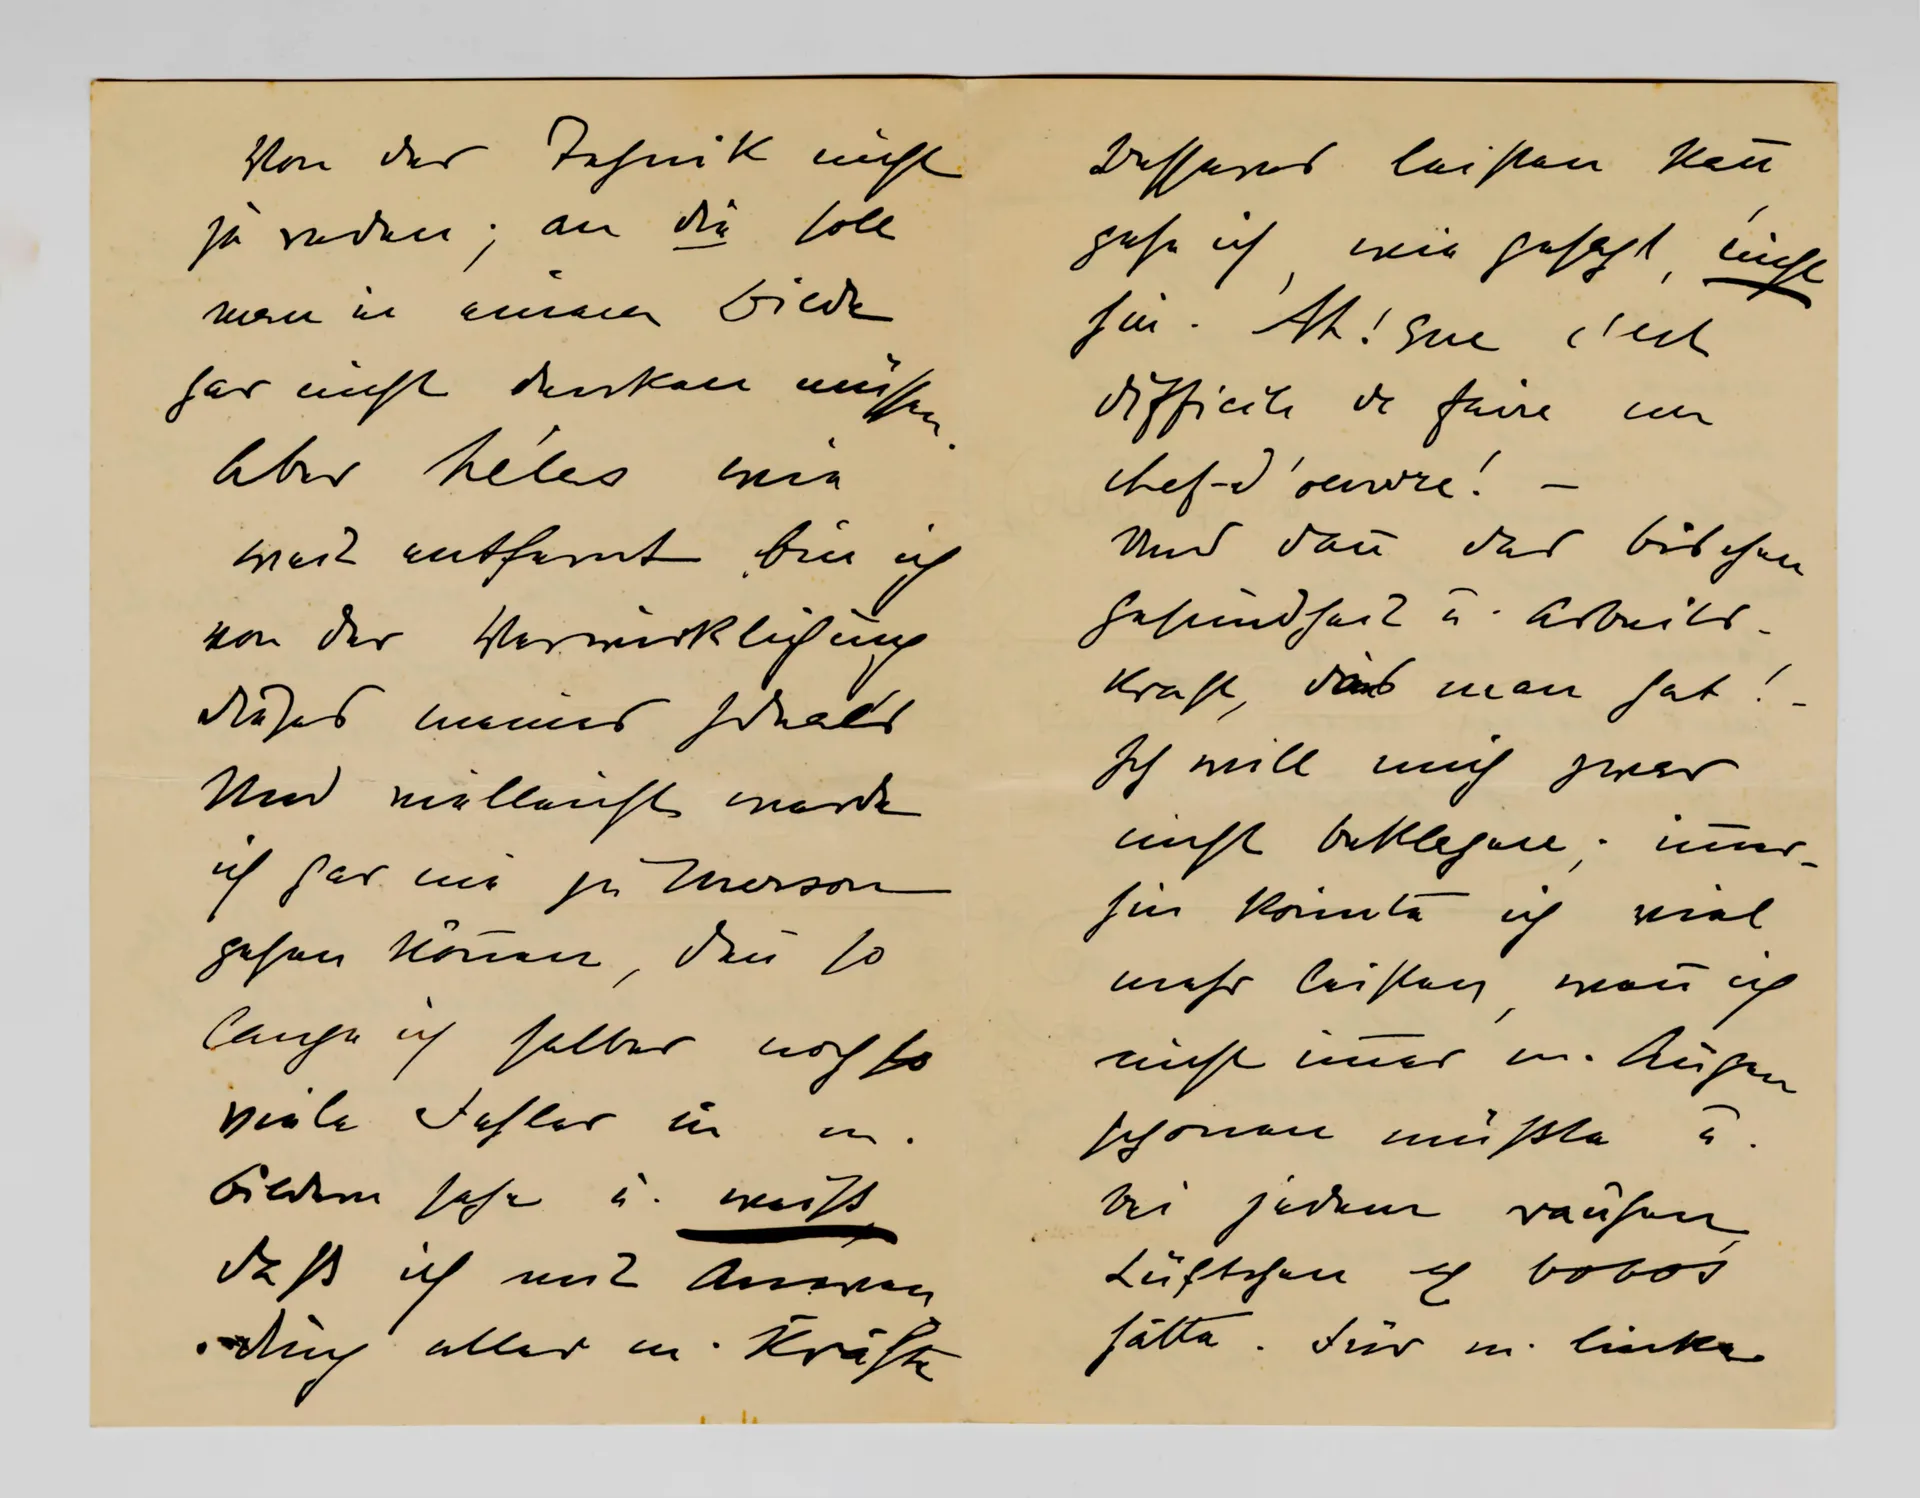 Von der Tehnik nicht
zu reden; an die soll
man in einem Bilde
gar nicht denken müssen.
Aber hélas wie
weit entfernt bin ich
von der Verwirklichung
dieses meines Ideals
Und vielleicht werde
ich gar nie zu Merson
gehen können, den̄ so
lange ich selber noch so
viele Fehler in m.
Bildern sehe u. weiß
daß ich mit Anwen
dung aller m. Kräfte
Besseres leisten kan̄,
gehe ich, wie gesagt, nicht
hin. Ah! que c'est
difficile de faire un
chef-d'œuvre! –
Und dan̄ das bischen
Gesundheit u. Arbeits-
kraft, das man hat! -
Ich will mich zwar
nicht beklagen; im̄er-
hin könnte ich viel
mehr leisten, wen̄ ich
nicht im̄er m. Augen
schonen müßte u.
bei jedem rauhen
Lüftchen bobos
hätte. Für m. linke